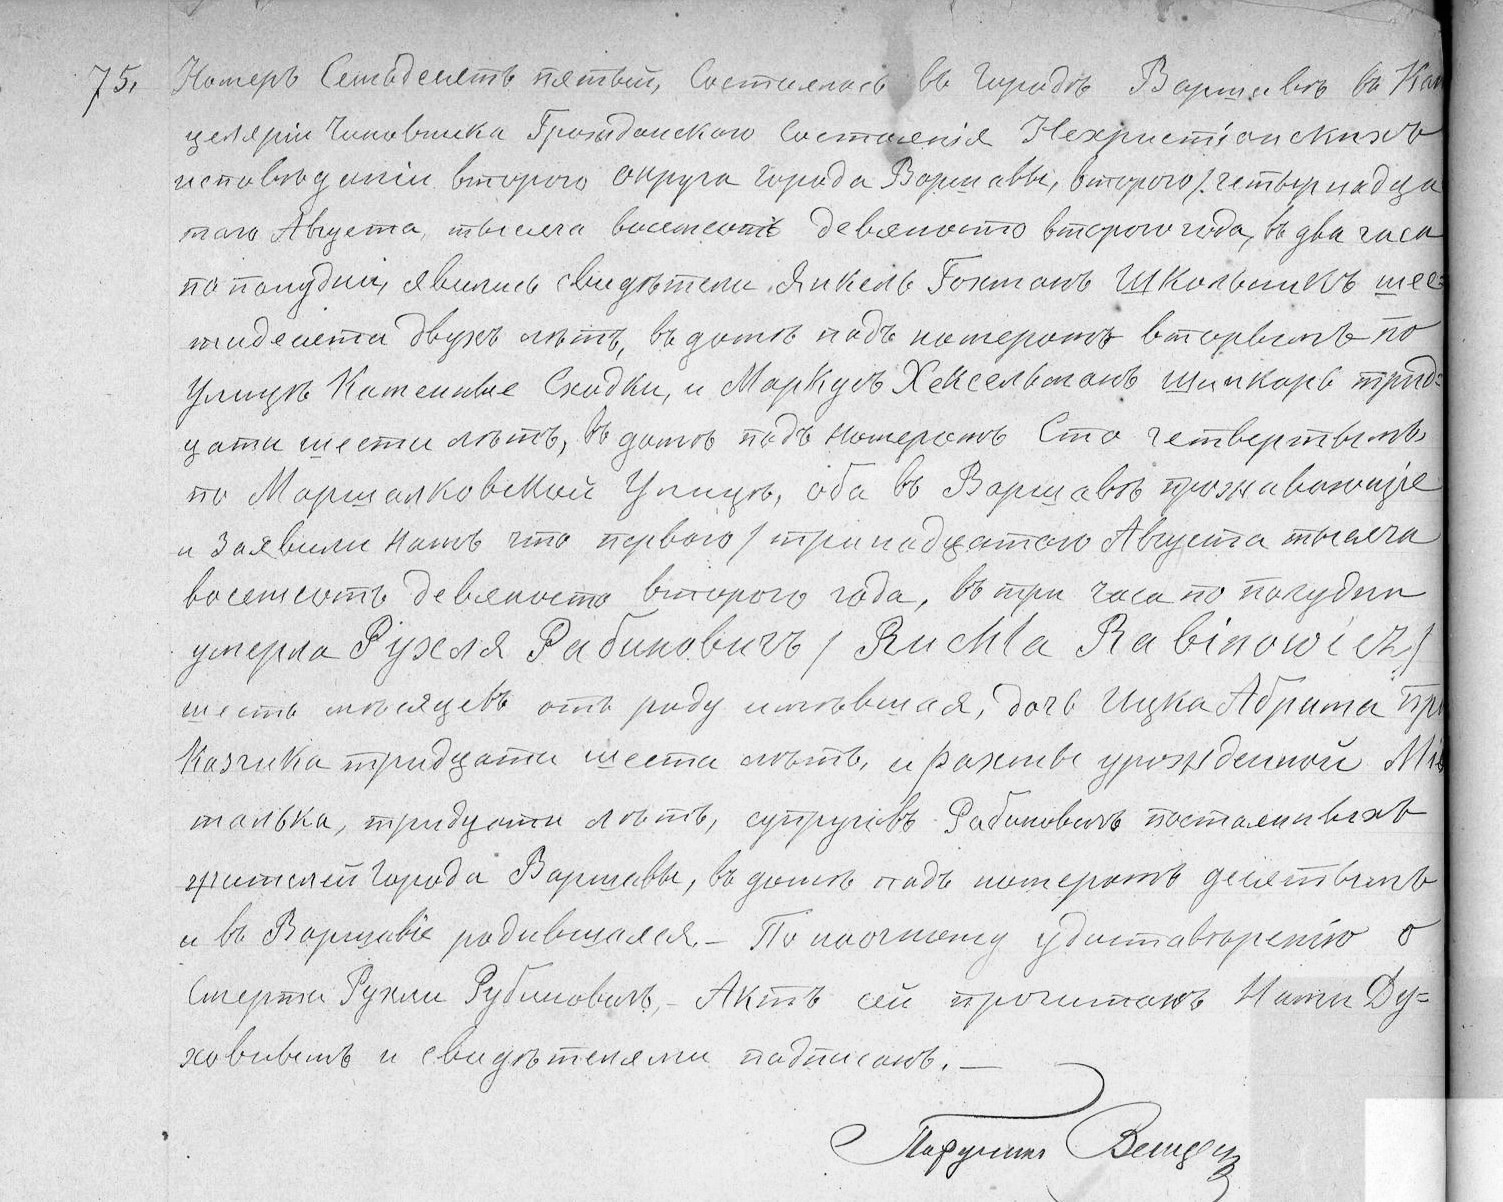 75. Номеръ Семьдесятъ пятый, Состоялось въ городѣ Варшавѣ въ Кан
целяріи Чиновника Гражданскаго Состоянія Нехристіанскихъ
исповѣданіи втораго округа города Варшавы, втораго /четырнадца
таго Августа, тысяча восемсотъ девяносто втораго года, въ два часа
по полудни, явились свидѣтели Янкель Гохманъ Школьникъ шес=
тидесяти двухъ лѣтъ, въ домѣ подъ номеромъ вторымъ по
Улицѣ Каменные Сходки, и Маркусъ Хексельманъ Шинкаръ трид=
цати шести лѣтъ, въ домѣ подъ номеромъ Сто четвертымъ
по Маршалковской Улицѣ, оба въ Варшавѣ проживающіе
и заявили намъ что перваго / тринадцатаго Августа тысяча
восемсотъ девяносто втораго года, въ три часа по полудни
умерла Рухля Рабиновичъ / Ruchla Rabinowicz/
шесть мѣсяцевъ отъ роду имѣвшая, дочь Ицка Абрама При
казчика тридцати шести лѣтъ, и Рахлы урожденной
талька, тридцати лѣтъ, супруговъ Рабиновичъ постоянныхъ
жителей города Варшавы, въ домѣ подъ номеромъ десятымъ
и въ Варшавѣ родившаяся. – По наочному удостовѣренію о
Смерти Рухли Рубиновичъ, – Актъ сей прочитанъ Нами Ду=
ховнымъ и свидѣтелями подписанъ. –